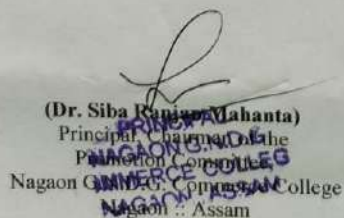 (Dr. Siba Ranjan Mahanta)
Principal, Chairman of the
Promotion Committee,
Nagaon G.N.D.G. Commerce College
Nagaon :: Assam
PRINCIPAL
NAGAON G.N.D.G.
COMMERCE COLLEG
NAGAON ASSAM